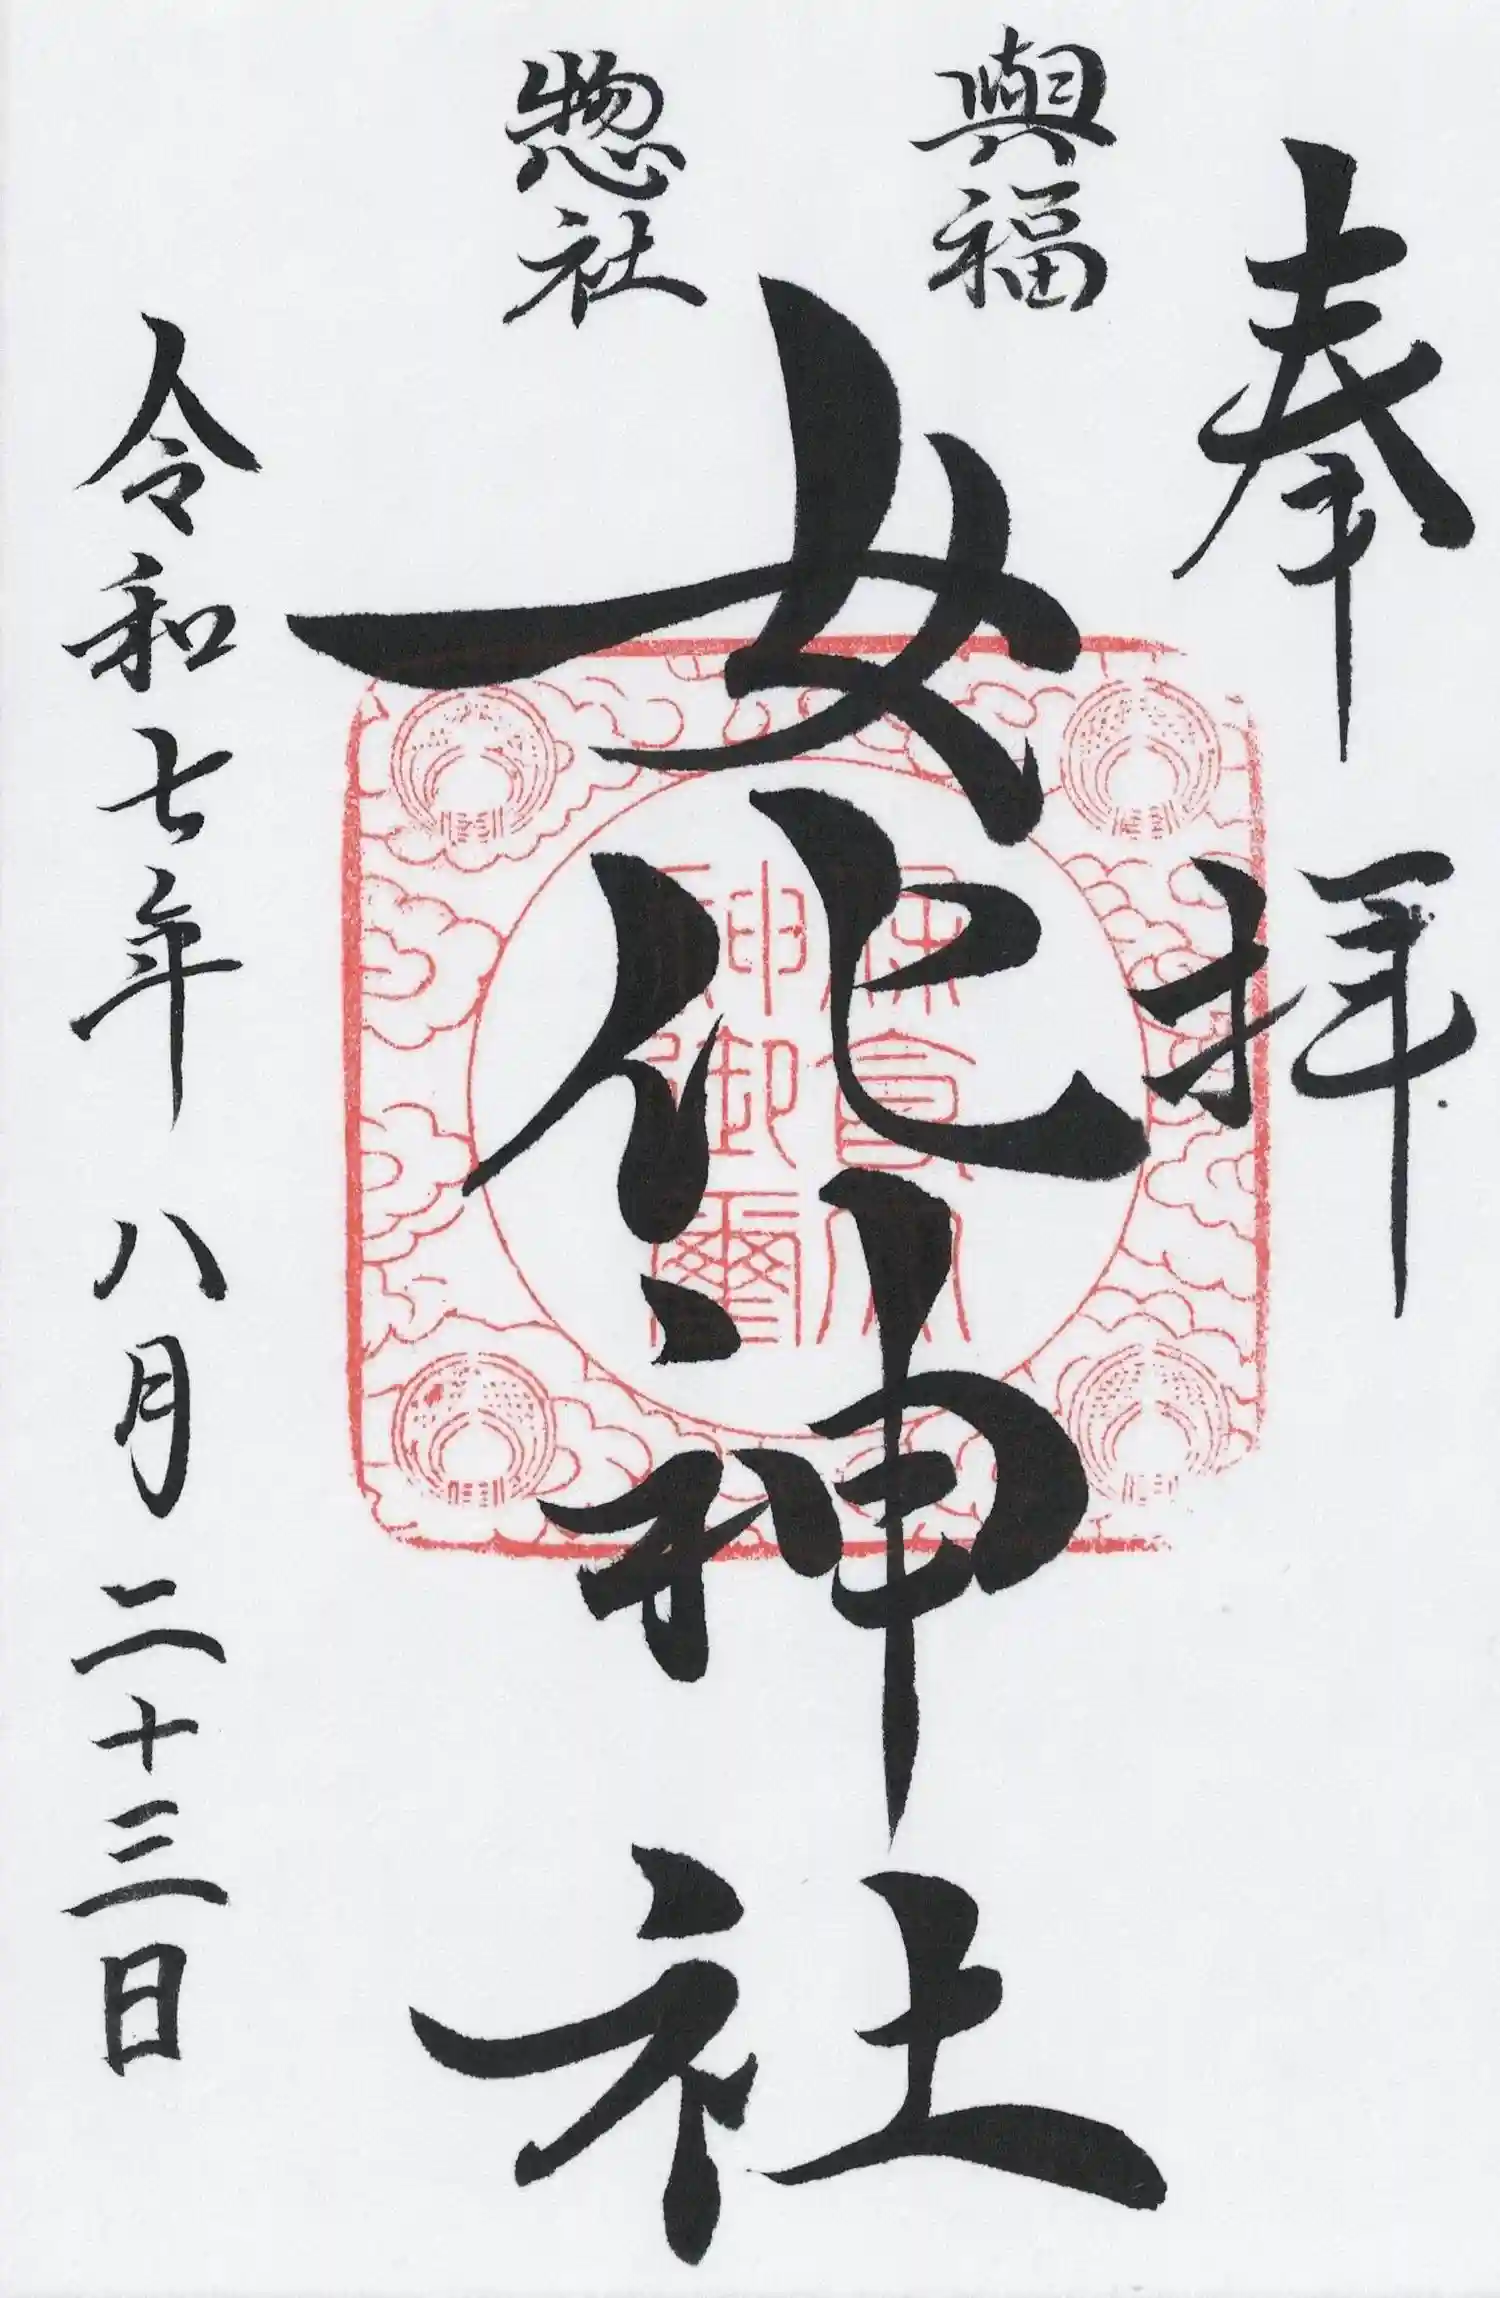 奉拝
興福
惣社
女化神社
保食大
神御璽
令和七年八月二十三日